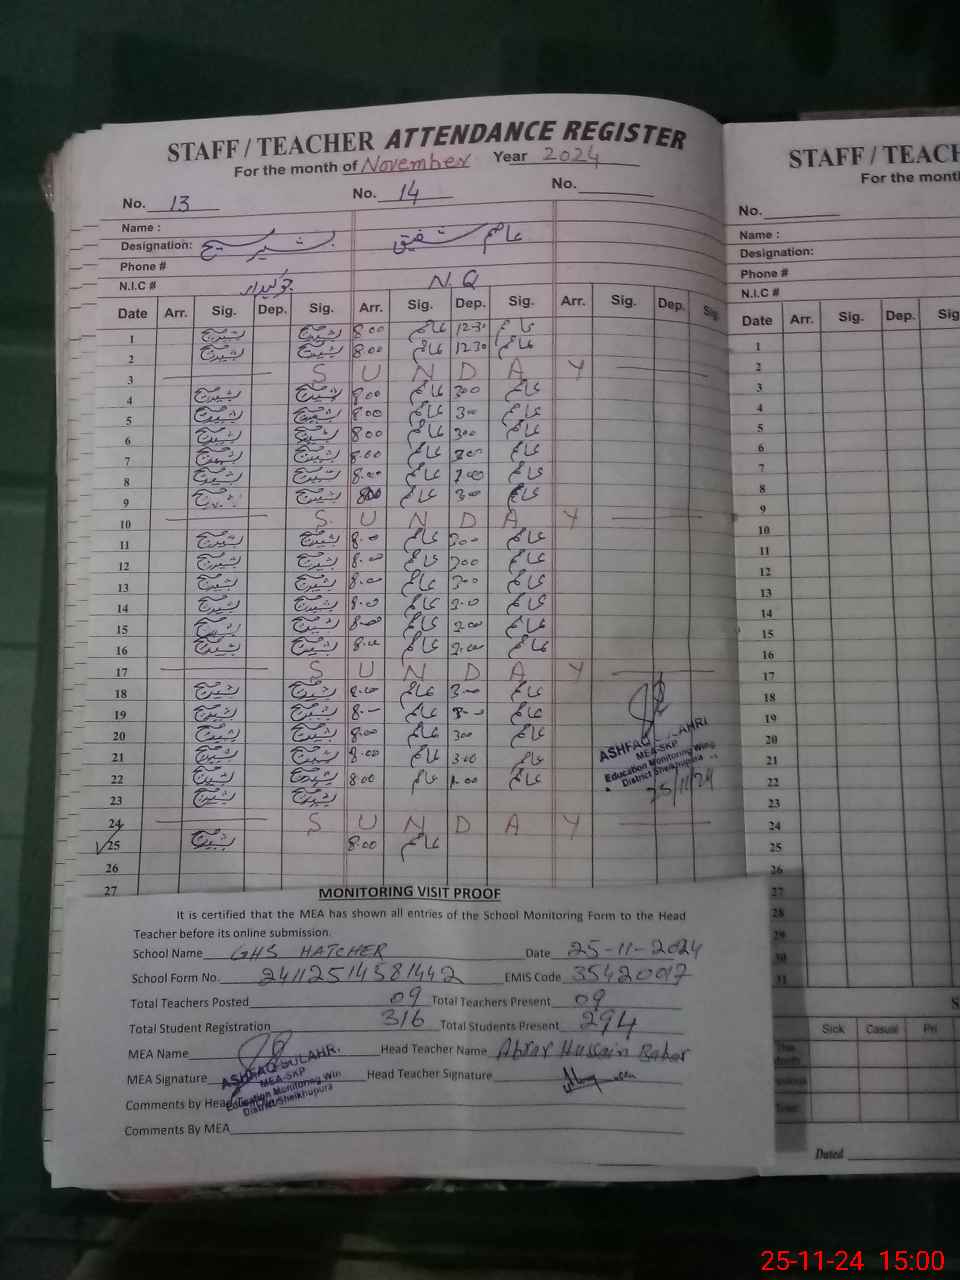 STAFF / TEACHER ATTENDANCE REGISTER
For the month of November Year 2024
No. 13 No. 14 No.
Name :
Designation: بشیر مسیح عاصم شفیق
Phone #
N.I.C # چوکیدار N.Q
Date Arr. Sig. Dep. Sig. Arr. Sig. Dep. Sig. Arr. Sig. Dep. Sig.
1 8.00 عاصم 12.30 عاصم
2 8.00 عاصم 12.30 عاصم
3 S U N D A Y
4 8.00 عاصم 300 عاصم
5 8.00 عاصم 300 عاصم
6 8.00 عاصم 300 عاصم
7 8.00 عاصم 300 عاصم
8 8.00 عاصم عاصم
9 800 عاصم 300 عاصم
10 S U N D A Y
11 8.00 عاصم 300 عاصم
12 8.00 عاصم 300 عاصم
13 8.00 عاصم 300 عاصم
14 8.00 عاصم عاصم
15 8.00 عاصم عاصم
16 8.00 عاصم عاصم
17 S U N D A Y
18 8.00 عاصم 3.00 عاصم
19 8.00 عاصم 3.00 عاصم
20 8.00 عاصم 300 عاصم
21 8.00 عاصم 3.00 عاصم
22 8.00 عاصم عاصم
23
24 S U N D A Y
25 8.00 عاصم
26
27
ASHFAQ SULAHRI
MEA-SKP
Education Monitoring Wing
District Sheikhupura
25/11/24
MONITORING VISIT PROOF
It is certified that the MEA has shown all entries of the School Monitoring Form to the Head
Teacher before its online submission.
School Name GHS HATCHER Date 25-11-2024
School Form No. 24112514581442 EMIS Code 35420097
Total Teachers Posted 09 Total Teachers Present 09
Total Student Registration 316 Total Students Present 294
MEA Name Head Teacher Name Abrar Hussain Babar
MEA Signature Head Teacher Signature
ASHFAQ SULAHRI
MEA-SKP
Education Monitoring Win
District Sheikhupura
Comments by Head
Comments By MEA
STAFF / TEACH
For the mont
No.
Name :
Designation:
Phone #
N.I.C #
Date Arr. Sig. Dep. Sig
1
2
3
4
5
6
7
8
9
10
11
12
13
14
15
16
17
18
19
20
21
22
23
24
25
26
27
28
29
30
31
S
Sick Casual Pri
Dated
25-11-24 15:00